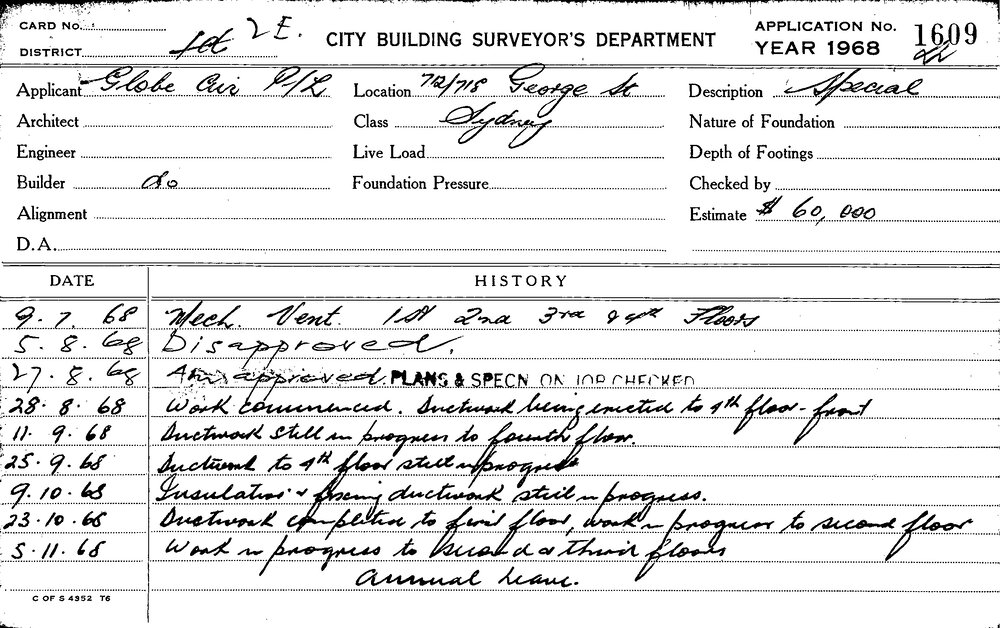 CARD No.
2 E.
DISTRICT
CITY BUILDING SURVEYOR'S DEPARTMENT
APPLICATION No. 1609
YEAR 1968
Applicant Globe Air P/L
Location 712/718 George St
Description Special
Architect
Class Sydney
Nature of Foundation
Engineer
Live Load
Depth of Footings
Builder do
Foundation Pressure
Checked by
Alignment
Estimate $ 60,000
D.A.
DATE HISTORY
9. 7. 68 Mech. Vent. 1st 2nd 3rd & 4th Floors
5. 8. 68 Disapproved.
27. 8. 68 approved. PLANS & SPECN ON JOB CHECKED
28. 8. 68 Work commenced. Ductwork being erected to 4th floor - front
11. 9. 68 Ductwork still in progress to fourth floor.
25. 9. 68 Ductwork to 4th floor still in progress
9. 10. 68 Insulation & fixing ductwork still in progress.
23. 10. 68 Ductwork completed to first floor, work in progress to second floor
5. 11. 68 Work in progress to second & third floors
Annual Leave.
C OF S 4352 T6